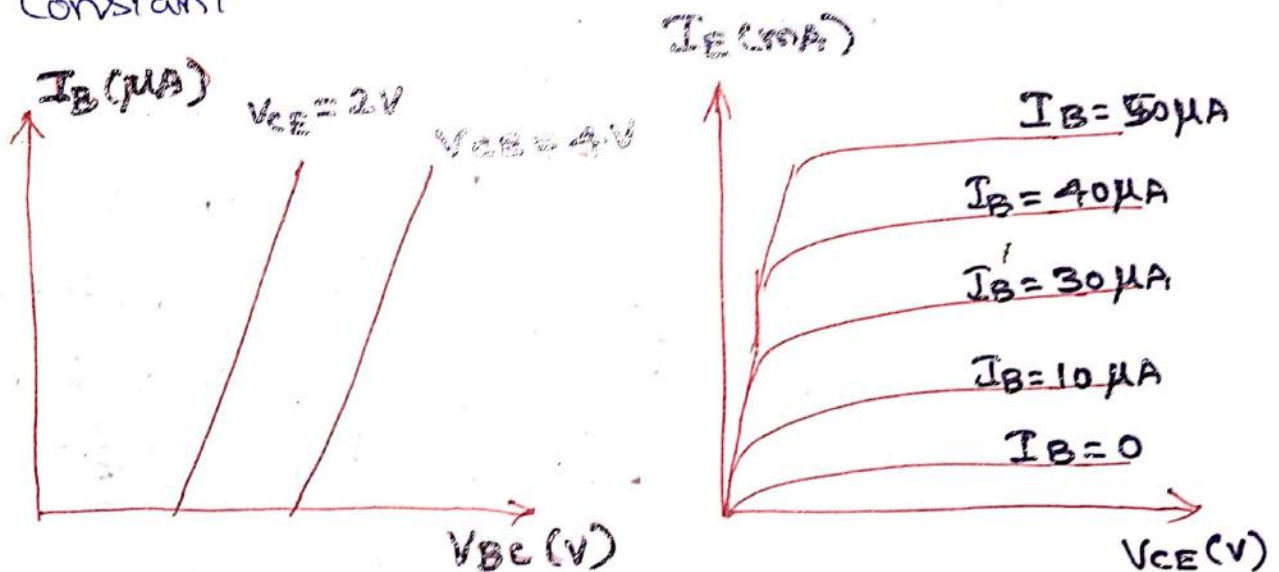 Constant
I_B (μA)
V_CE = 2V
V_CB = 4V
V_BC (V)
I_E (mA)
I_B = 50 μA
I_B = 40 μA
I_B = 30 μA
I_B = 10 μA
I_B = 0
V_CE (V)